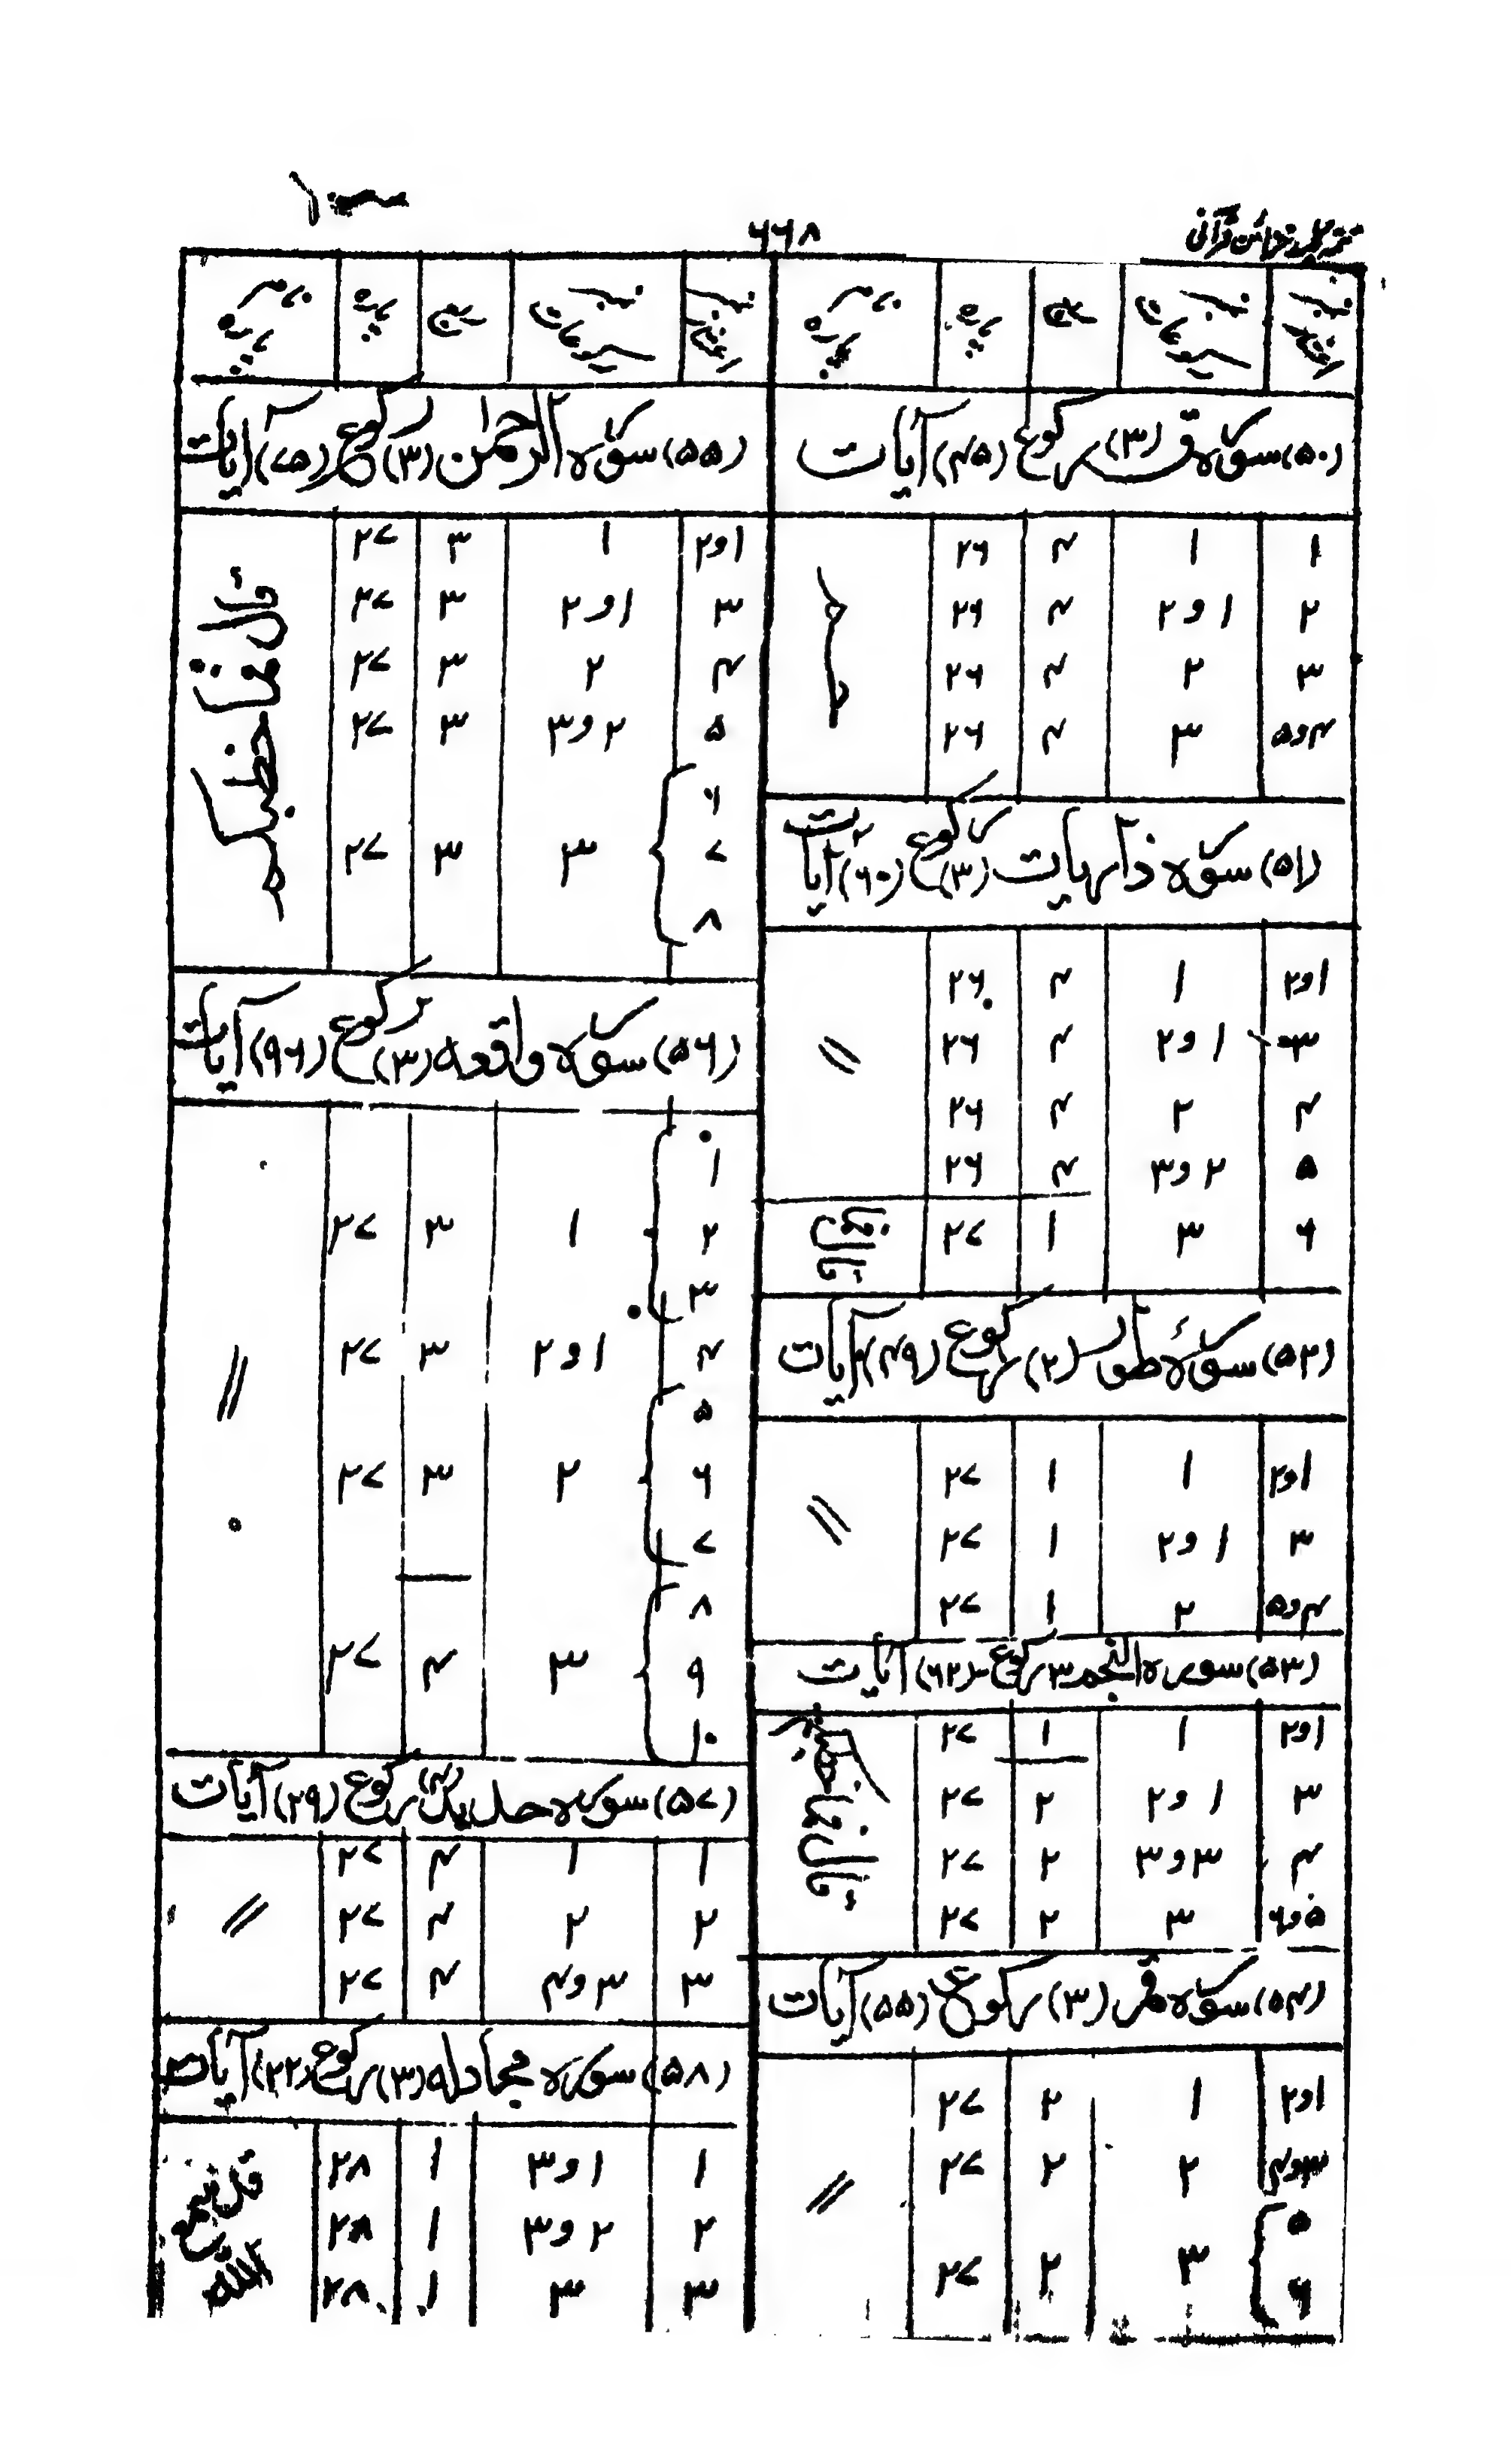 ۶۶۸
نمبر اعشار | نمبر رکوعات | ربع | پارہ | نام پارہ
(۵۰) سورہ ق (۳) رکوع (۴۵) آیات
۱ | ۱ | ۴ | ۲۶ | حٰم
۲ | ۱ و ۲ | ۴ | ۲۶
۳ | ۲ | ۴ | ۲۶
۴و۵ | ۳ | ۴ | ۲۶
(۵۱) سورہ ذاریات (۳) رکوع (۶۰) آیات
۱و۲ | ۱ | ۴ | ۲۶ | //
۳ | ۱ و ۲ | ۴ | ۲۶
۴ | ۲ | ۴ | ۲۶
۵ | ۲ و ۳ | ۴ | ۲۶
۶ | ۳ | ۱ | ۲۷ | قال فما خطبکم
(۵۲) سورۂ طور (۲) رکوع (۴۹) آیات
۱و۲ | ۱ | ۱ | ۲۷ | //
۳ | ۱ و ۲ | ۱ | ۲۷
۴و۵ | ۲ | ۱ | ۲۷
(۵۳) سورہ النجم ۳ رکوع (۶۲) آیات
۱و۲ | ۱ | ۱ | ۲۷ | قال فما خطبکم
۳ | ۱ و ۲ | ۲ | ۲۷
۴ | ۳ و ۳ | ۲ | ۲۷
۵و۶ | ۳ | ۲ | ۲۷
(۵۴) سورہ قمر (۳) رکوع (۵۵) آیات
۱و۲ | ۱ | ۲ | ۲۷ | //
۳و۴ | ۲ | ۲ | ۲۷
۵
۶ | ۳ | ۲ | ۲۷
نمبر اعشار | نمبر رکوعات | ربع | پارہ | نام پارہ
(۵۵) سورہ الرحمٰن (۳) رکوع (۷۸) آیات
۱و۲ | ۱ | ۳ | ۲۷ | قال فما خطبکم
۳ | ۱ و ۲ | ۳ | ۲۷
۴ | ۲ | ۳ | ۲۷
۵ | ۲ و ۳ | ۳ | ۲۷
۶
۷ | ۳ | ۳ | ۲۷
۸
(۵۶) سورہ واقعہ (۳) رکوع (۹۶) آیات
۰
۱
۲ | ۱ | ۳ | ۲۷
۳
۴ | ۱ و ۲ | ۳ | ۲۷ | //
۵
۶ | ۲ | ۳ | ۲۷
۷
۸
۹ | ۳ | ۴ | ۲۷
۱۰
(۵۷) سورہ حدید (۴) رکوع (۲۹) آیات
۱ | ۱ | ۴ | ۲۷
۲ | ۲ | ۴ | ۲۷ | //
۳ | ۳ و ۴ | ۴ | ۲۷
(۵۸) سورہ مجادلہ (۳) رکوع (۲۲) آیات
۱ | ۱ و ۳ | ۱ | ۲۸ | قد سمع اللہ
۲ | ۲ و ۳ | ۱ | ۲۸
۳ | ۳ | ۱ | ۲۸